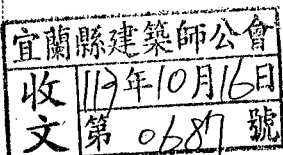 宜蘭縣建築師公會
收文
113年10月16日
第 0687 號